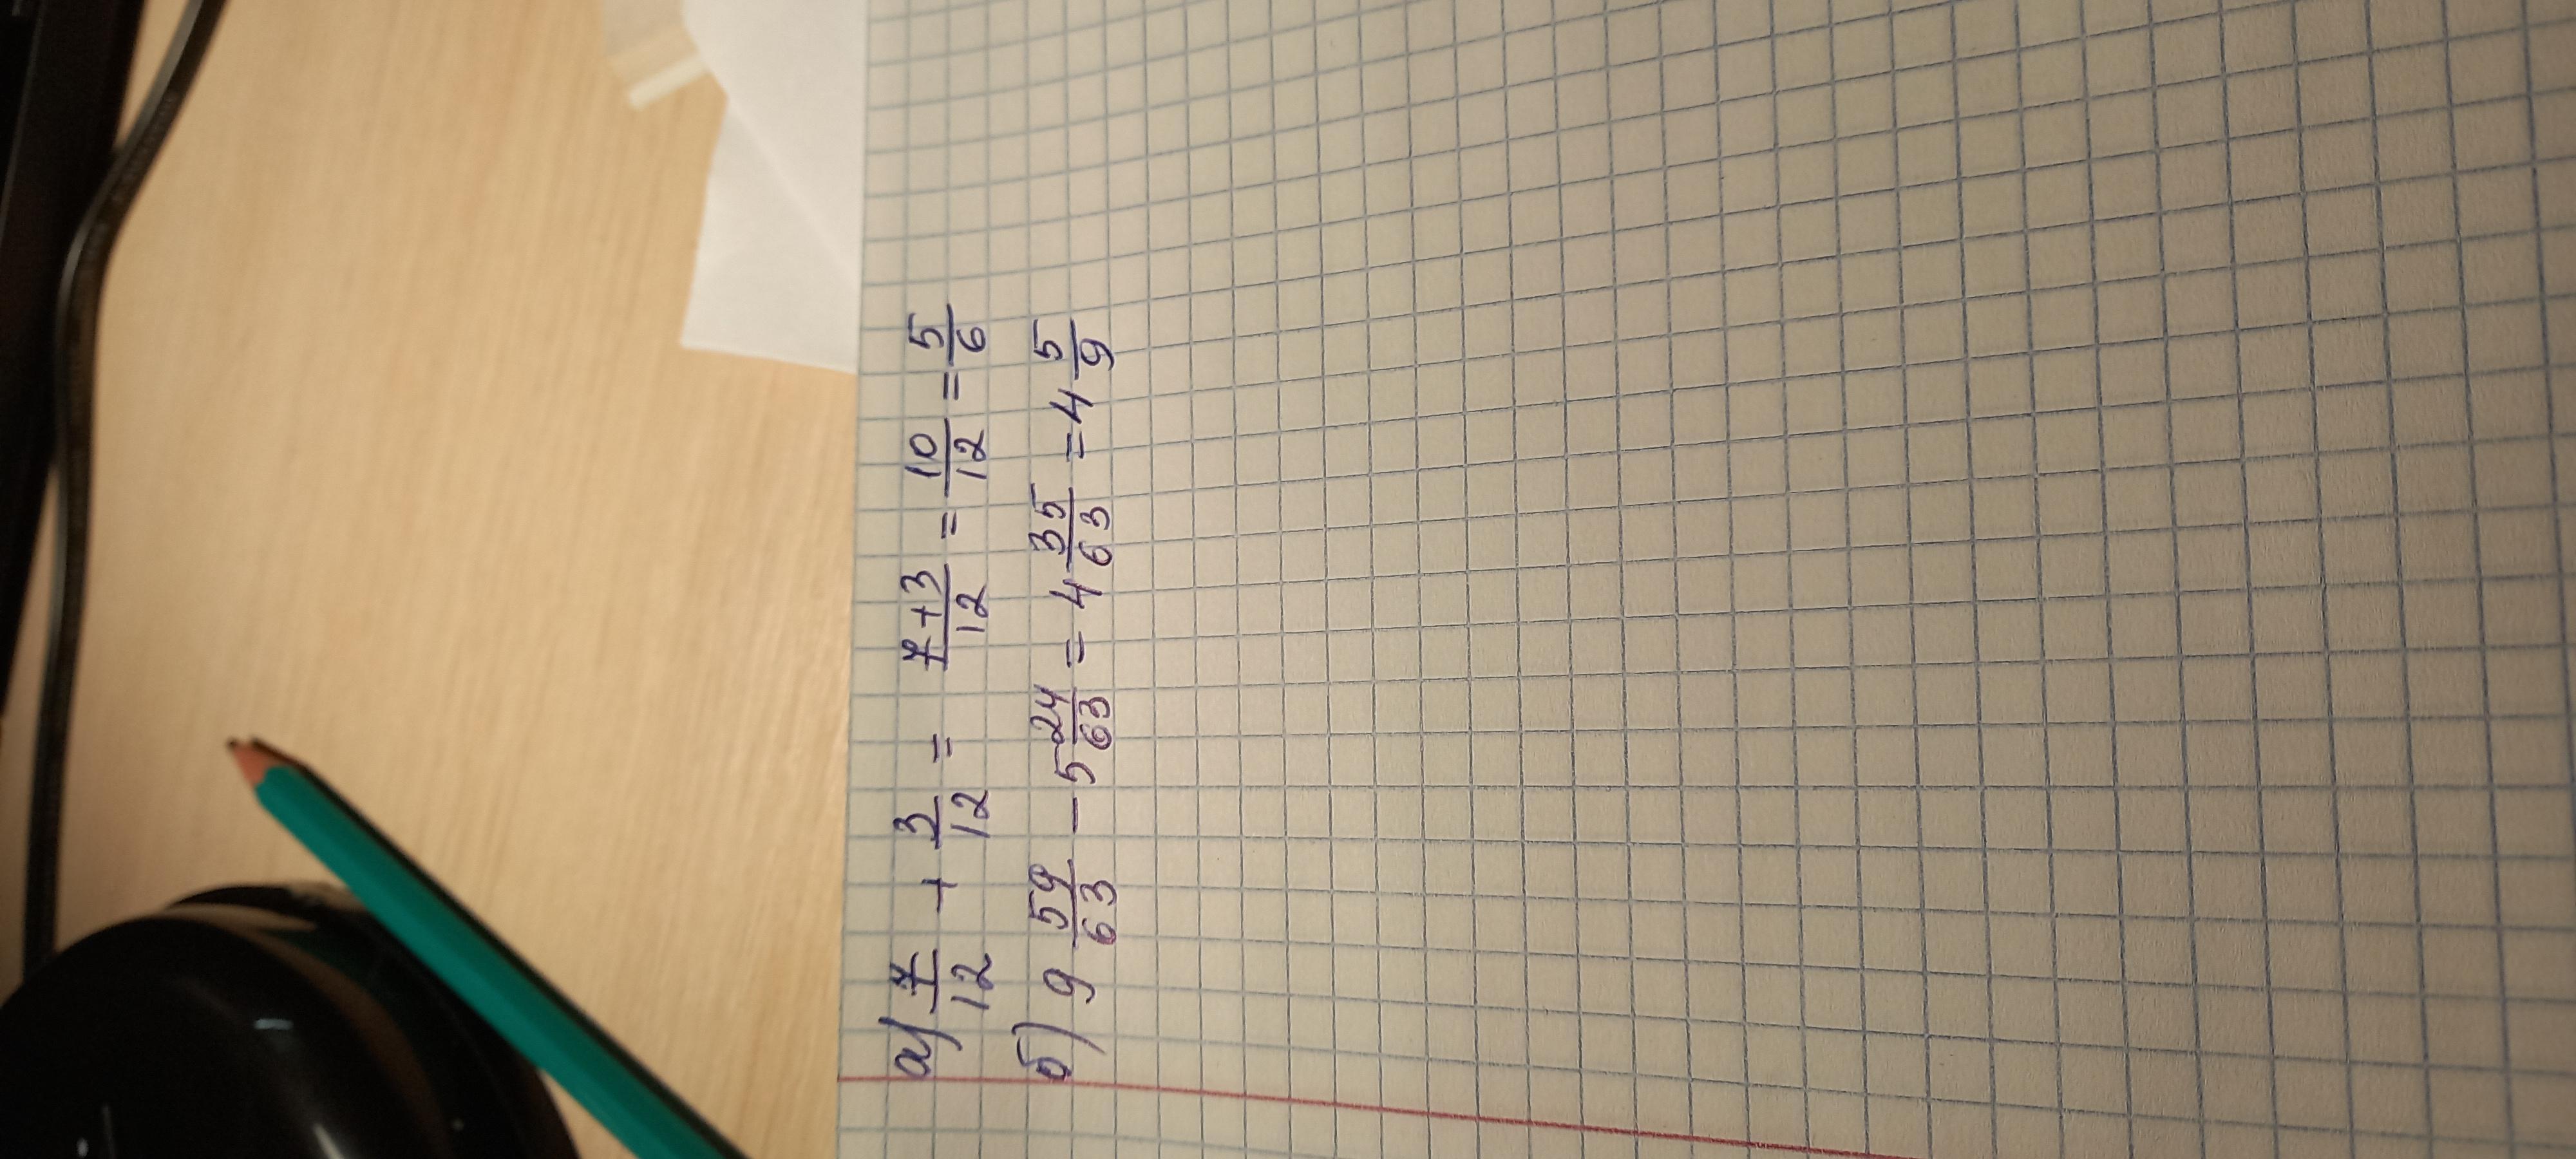 а) 7/12 + 3/12 = 7+3/12 = 10/12 = 5/6
б) 9 59/63 - 5 24/63 = 4 35/63 = 4 5/9